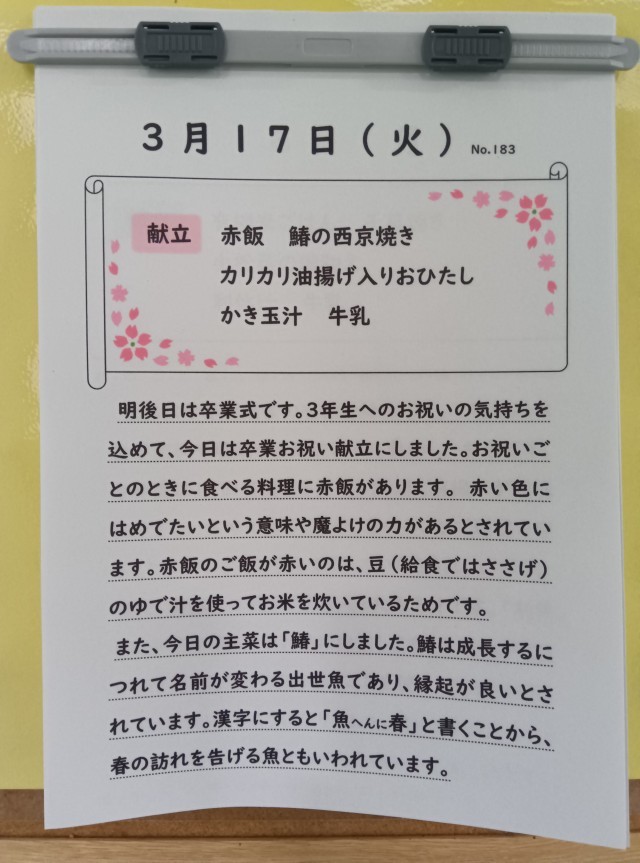 3月17日(火) No.183
献立 赤飯 鰆の西京焼き
カリカリ油揚げ入りおひたし
かき玉汁 牛乳
明後日は卒業式です。3年生へのお祝いの気持ちを
込めて、今日は卒業お祝い献立にしました。お祝いご
とのときに食べる料理に赤飯があります。 赤い色に
はめでたいという意味や魔よけの力があるとされてい
ます。赤飯のご飯が赤いのは、豆(給食ではささげ)
のゆで汁を使ってお米を炊いているためです。
また、今日の主菜は「鰆」にしました。鰆は成長するに
つれて名前が変わる出世魚であり、縁起が良いとさ
れています。漢字にすると「魚へんに春」と書くことから、
春の訪れを告げる魚ともいわれています。